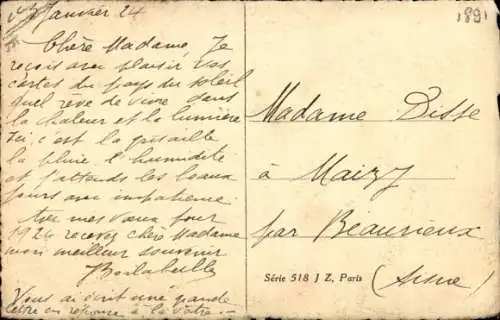 Janvier 24
Chère Madame, Je
reçois avec plaisir vos
cartes du pays du soleil
quel rêve de vivre dans
la chaleur et la lumière
Ici c'est la grisaille
la pluie, l'humidité
et j'attends les beaux
jours avec impatience
mes vœux pour
1924 recevez chère Madame
mon meilleur souvenir
Vous ai écrit une grande
lettre en réponse à la vôtre
1891
Madame Disse
à Maizy
par Beaurieux
(Aisne)
Série 518 J Z, Paris